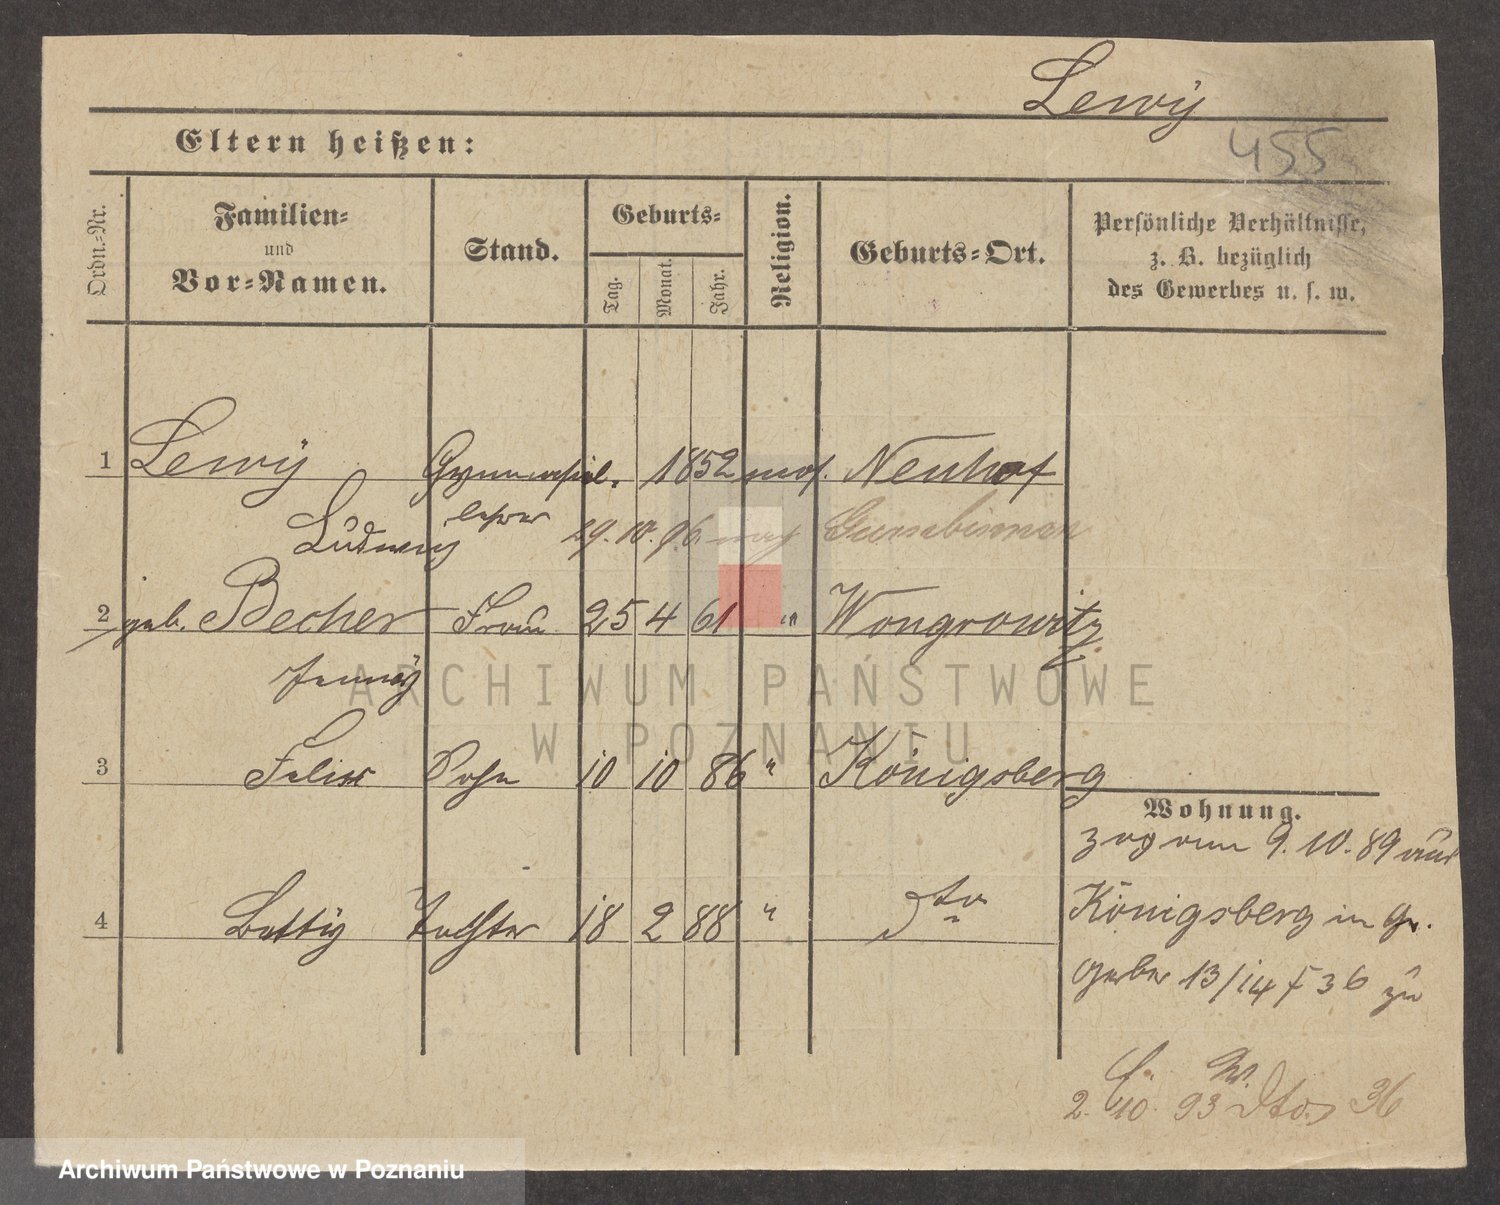 Lewÿ
455
Eltern heißen:
Ordn.-Nr.
Familien-
und
Vor-Namen.
Stand.
Geburts-
Tag.
Monat.
Jahr.
Religion.
Geburts-Ort.
Persönliche Verhältnisse,
z. B. bezüglich
des Gewerbes u. s. w.
1 Lewÿ Gymnasial. 1852 mos. Neuhof
Ludwig lehrer 29.10.96 nach Gumbinnen
2 geb. Becher Frau 25 4 61 " Wongrowitz
Jennÿ
3 Felix Sohn 10 10 86 " Königsberg
Wohnung.
zog am 9.10.89 aus
4 Bettÿ Tochter 18 2 88 " dto
Königsberg in
Gerber 13/14 f 36 zu
2. 10. 93 dto 36
ARCHIWUM PAŃSTWOWE
W POZNANIU
Archiwum Państwowe w Poznaniu